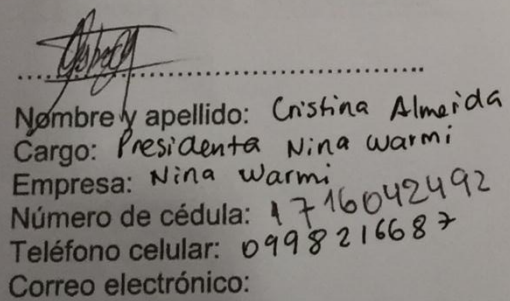 Nombre y apellido: Cristina Almeida
Cargo: Presidenta Nina warmi
Empresa: Nina warmi
Número de cédula: 1716042492
Teléfono celular: 0998216687
Correo electrónico: